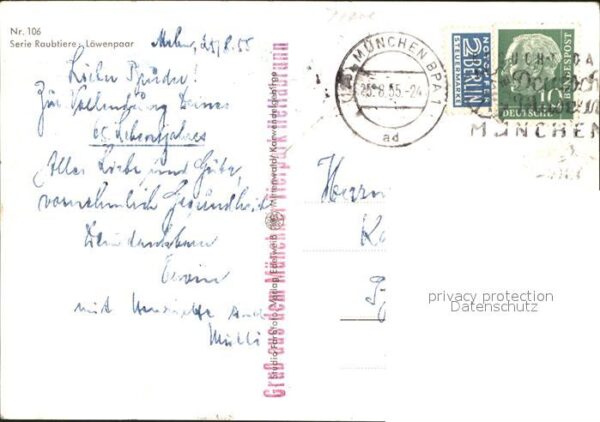 Nr. 106
Serie Raubtiere - Löwenpaar
25/8.55
Lieber Bruder!
Zur Vollendung Deines
65. Lebensjahres
Alles Liebe und Gute,
vornehmlich Gesundheit
Erwin
mit
Mutti
Studio Verlag Edelweiß Mittenwald/Karwendelgebirge
Gruß aus dem Münchner Tierpark Hellabrunn
MÜNCHEN BPA 1
25.8.55.-24
ad
NOTOPFER
2 BERLIN
STEUERMARKE
10
DEUTSCHE BUNDESPOST
MÜNCHEN
Herrn
privacy protection
Datenschutz